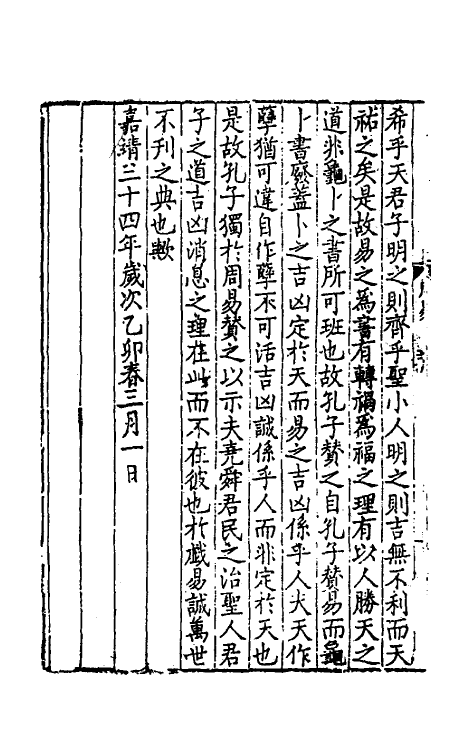 希乎天君子明之則齊乎聖小人明之則吉無不利而天
祐之矣是故易之為書有轉禍為福之理有以人勝天之
道非龜卜之書所可班也故孔子贊之自孔子贊易而龜
卜書廢蓋卜之吉凶定於天而易之吉凶係乎人夫天作
孽猶可違自作孽不可活吉凶誠係乎人而非定於天也
是故孔子獨於周易贊之以示夫堯舜君民之治聖人君
子之道吉凶消息之理在此而不在彼也於戲易誠萬世
不刊之典也歟
嘉靖三十四年歲次乙卯春三月一日